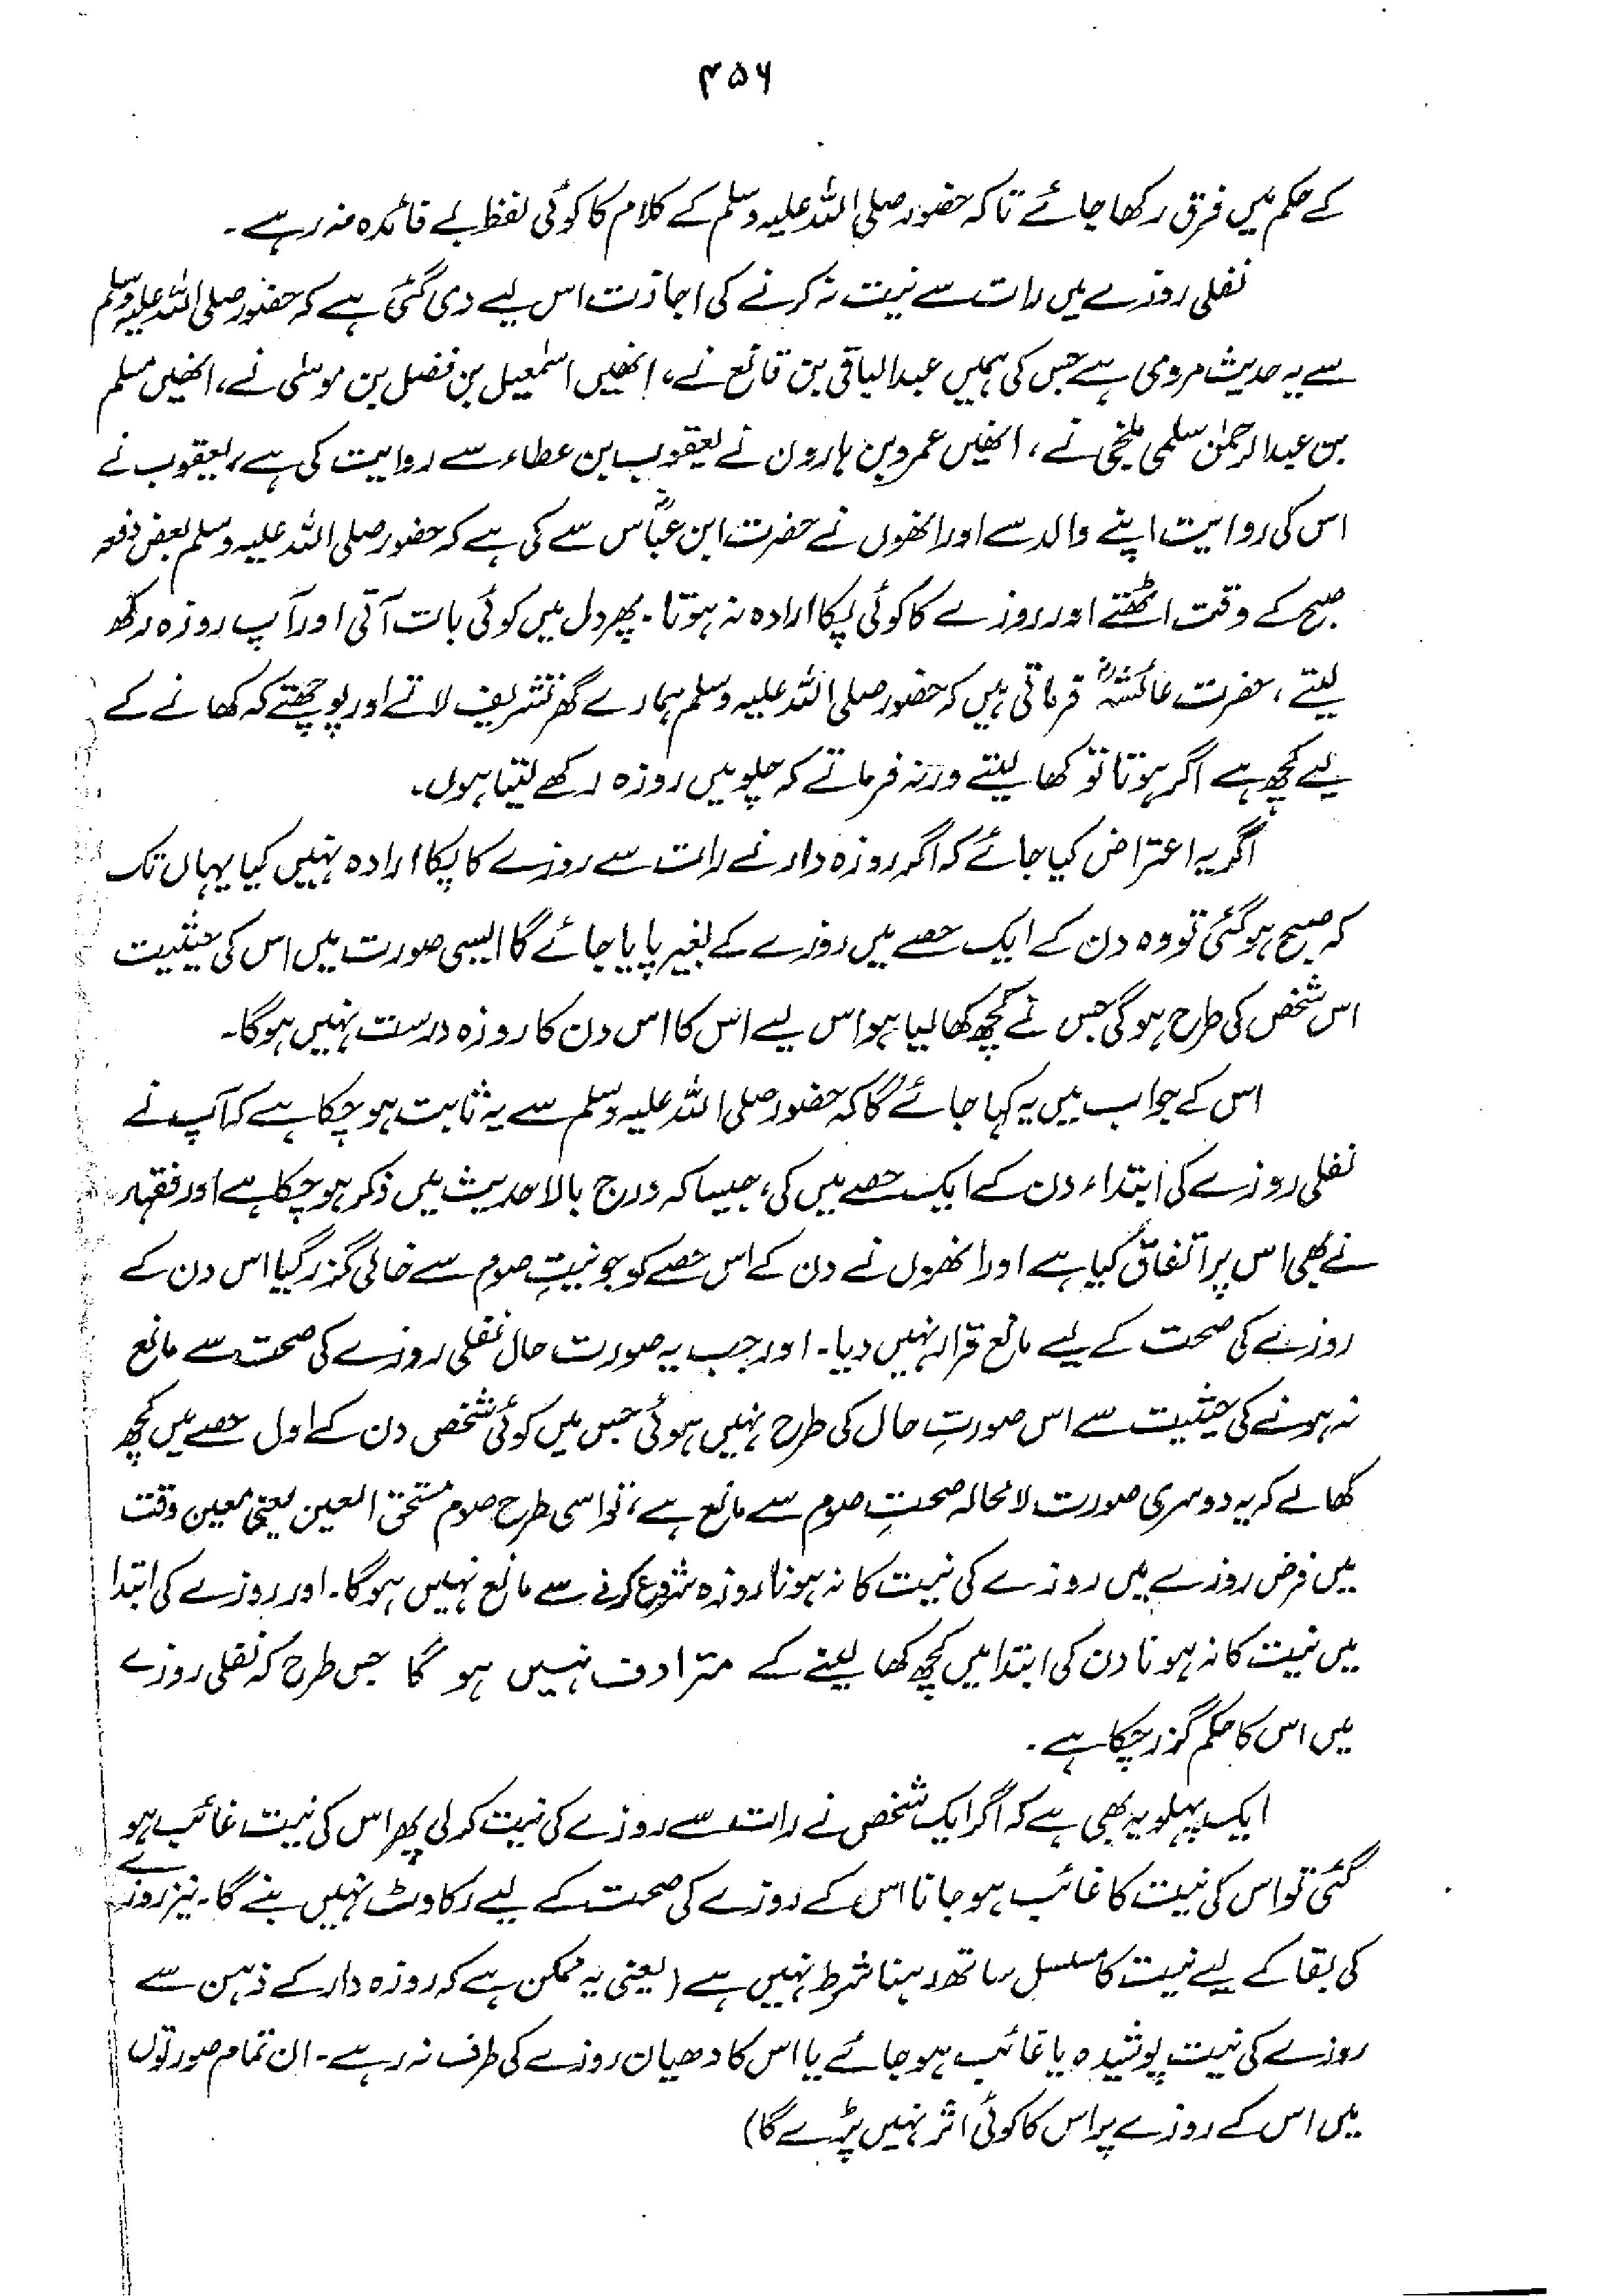 ۴۵۶
کے حکم میں فرق رکھا جائے تاکہ حضور صلی اللہ علیہ وسلم کے کلام کا کوئی لفظ بے فائدہ نہ رہے۔
نفلی روزے میں رات سے نیت نہ کرنے کی اجازت اس لیے دی گئی ہے کہ حضور صلی اللہ علیہ وسلم
سے یہ حدیث مروی ہے جس کی ہمیں عبدالباقی بن قانع نے، انھیں اسمٰعیل بن فضل بن موسٰی نے، انھیں مسلم
بن عبدالرحمٰن سلمی بلخی نے، انھیں عمرو بن ہارون نے یعقوب بن عطاء سے روایت کی ہے، یعقوب نے
اس کی روایت اپنے والد سے اور انھوں نے حضرت ابن عبّاسؓ سے کی ہے کہ حضور صلی اللہ علیہ وسلم بعض دفعہ
صبح کے وقت اٹھتے اور روزے کا کوئی پکا ارادہ نہ ہوتا۔ پھر دل میں کوئی بات آتی اور آپ روزہ رکھ
لیتے، حضرت عائشہؓ فرماتی ہیں کہ حضور صلی اللہ علیہ وسلم ہمارے گھر تشریف لاتے اور پوچھتے کہ کھانے کے
لیے کچھ ہے اگر ہوتا تو کھا لیتے ورنہ فرماتے کہ چلو میں روزہ رکھے لیتا ہوں۔
اگر یہ اعتراض کیا جائے کہ اگر روزہ دار نے رات سے روزے کا پکا ارادہ نہیں کیا یہاں تک
کہ صبح ہو گئی تو وہ دن کے ایک حصے میں روزے کے بغیر پایا جائے گا ایسی صورت میں اس کی حیثیت
اس شخص کی طرح ہو گی جس نے کچھ کھا لیا ہو اس لیے اس کا اس دن کا روزہ درست نہیں ہوگا۔
اس کے جواب میں یہ کہا جائے گا کہ حضور صلی اللہ علیہ وسلم سے یہ ثابت ہو چکا ہے کہ آپ نے
نفلی روزے کی ابتداء دن کے ایک حصے میں کی، جیسا کہ درج بالا حدیث میں ذکر ہو چکا ہے اور فقہاء
نے بھی اس پر اتفاق کیا ہے اور انھوں نے دن کے اس حصے کو جو نیتِ صوم سے خالی گزر گیا اس دن کے
روزے کی صحت کے لیے مانع قرار نہیں دیا۔ اور جب یہ صورت حال نفلی روزے کی صحت سے مانع
نہ ہونے کی حیثیت سے اس صورتِ حال کی طرح نہیں ہوئی جس میں کوئی شخص دن کے اول حصے میں کچھ
کھا لے کہ یہ دوسری صورت لامحالہ صحتِ صوم سے مانع ہے، تو اسی طرح صوم مستحق العین یعنی معین وقت
میں فرض روزے میں روزے کی نیت کا نہ ہونا روزہ شروع کرنے سے مانع نہیں ہوگا۔ اور روزے کی ابتدا
میں نیت کا نہ ہونا دن کی ابتدا میں کچھ کھا لینے کے مترادف نہیں ہو گا جس طرح کہ نفلی روزے
میں اس کا حکم گزر چکا ہے۔
ایک پہلو یہ بھی ہے کہ اگر ایک شخص نے رات سے روزے کی نیت کر لی پھر اس کی نیت غائب ہو
گئی تو اس کی نیت کا غائب ہو جانا اس کے روزے کی صحت کے لیے رکاوٹ نہیں بنے گا۔ نیز روزے
کی بقا کے لیے نیت کا مسلسل ساتھ رہنا شرط نہیں ہے (یعنی یہ ممکن ہے کہ روزہ دار کے ذہن سے
روزے کی نیت پوشیدہ یا غائب ہو جائے یا اس کا دھیان روزے کی طرف نہ رہے۔ ان تمام صورتوں
میں اس کے روزے پر اس کا کوئی اثر نہیں پڑے گا)